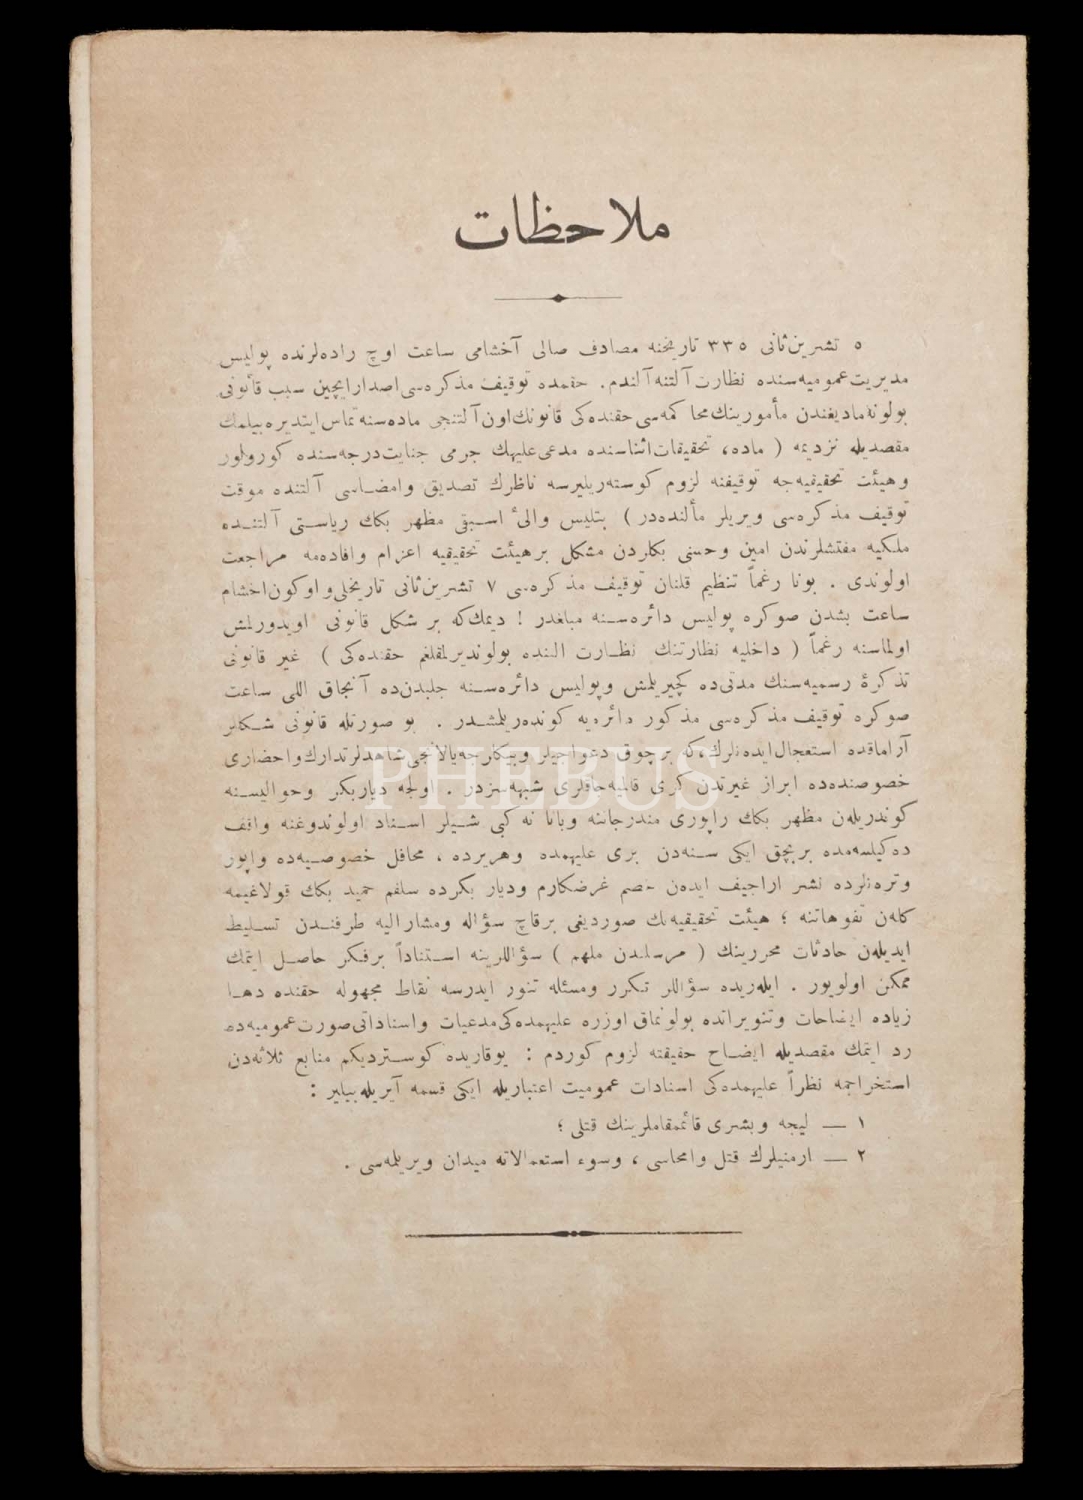 ملاحظات
٥ تشرین‌ثانی ٣٣٥ تاریخنه مصادف صالی آخشامی ساعت اوچ راده‌لرنده پولیس
مدیریت‌عمومیه‌سنده نظارت آلتنه آلندم. حقمده توقیف مذکره‌سی اصدار ایچین سبب قانونی
بولونه‌مادیغندن مأمورینك محاکمه‌سی حقنده‌کی قانونك اون آلتنجی ماده‌سنه تماس ایتدیره‌بیلمك
مقصدیله نزدیمه ( ماده، تحقیقات اثناسنده مدعی‌علیهك جرمی جنایت درجه‌سنده کورولور
وهیئت تحقیقیه‌جه توقیفنه لزوم کوسته‌ریلیرسه ناظرك تصدیق وامضاسی آلتنده موقت
توقیف مذکره‌سی ویریلر مألنده‌در ) بتلیس والیٔ اسبقی مظهر بكك ریاستی آلتنده
ملکیه مفتشلرندن امین وحسنی بكلردن مشکل بر هیئت تحقیقیه اعزام وافاده‌مه مراجعت
اولوندی . بونا رغماً تنظیم قلنان توقیف مذکره‌سی ٧ تشرین‌ثانی تاریخلی و اوکون اخشام
ساعت بشدن صوکره پولیس دائره‌سنه مبلغدر ! دیمك‌که بر شکل قانونی اویدورلمش
اولماسنه رغماً ( داخلیه نظارتنك نظارت النده بولوندیرلمقلغم حقنده‌کی ) غیر قانونی
تذکرهٔ رسمیه‌سنك مدتی‌ده کچیریلمش وپولیس دائره‌سنه جلبدن‌ده آنجاق اللی ساعت
صوکره توقیف مذکره‌سی مذکور دائره‌یه کونده‌ریلمشدر . بو صورتله قانونی شکللر
آراماقده استعجال ایده‌نلرك، که بر چوق دعواجیلر وبیکلرجه یالانجی شاهدلر تدارك واحضاری
خصوصنده‌ده ابراز غیرتدن کری قالمیه‌جقلری شبهه‌سزدر . اولجه دیاربکر وحوالیسنه
کوندریله‌ن مظهر بكك راپوری مندرجاتنه وبانا نه کبی شیلر اسناد اولوندوغنه واقف
ده‌کیلسه‌مده بربچق ایکی سنه‌دن بری علیهمده وهریرده ، محافل خصوصیه‌ده واپور
وتره‌نلرده نشر اراجیف ایده‌ن خصم غرضکارم ودیار بکرده سلفم حمید بكك قولاغیمه
کله‌ن تفوهاتنه ؛ هیئت تحقیقیه‌نك صوردیغی برقاچ سؤاله ومشارالیه طرفندن تسلیط
ایدیله‌ن حادثات محررینك ( مرسلدن ملهم ) سؤاللرینه استناداً بر فکر حاصل ایتمك
ممکن اولویور . ایله‌ریده سؤاللر تکرر ومسئله تنور ایدرسه نقاط مجهوله حقنده دها
زیاده ایضاحات وتنویراتده بولونماق اوزره علیهمده‌کی مدعیات واسناداتی صورت‌عمومیه‌ده
رد ایتمك مقصدیله ایضاح حقیقته لزوم کوردم : یوقاریده کوستردیکم منابع ثلاثه‌دن
استخراجمه نظراً علیهمده‌کی اسنادات عمومیت اعتباریله ایکی قسمه آیریله‌بیلیر :
١ — لیجه وبشری قائممقاملرینك قتلی ؛
٢ — ارمنیلرك قتل وامحاسی ، وسوء استعمالاته میدان ویریلمه‌سی .
PHEBUS